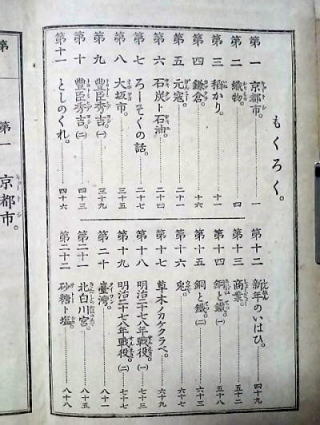 もくろく。
第一 京都市。 一
第二 織物。
第三 稲かり。 十一
第四 鎌倉。 十六
第五 元寇。 二十一
第六 石炭ト石油。 二十四
第七 ろーそくの話。 二十七
第八 大坂市。 三十五
第九 豊臣秀吉(一) 三十九
第十 豊臣秀吉(二) 四十三
第十一 としのくれ。 四十六
第十二 新年のいはひ。 四十九
第十三 商業。 五十二
第十四 銅と鐵。(一) 五十八
第十五 銅と鐵。(二) 六十三
第十六 兎。 六十七
第十七 草木ノカケクラベ。
第十八 明治二十七八年戰役。(一) 七十三
第十九 明治二十七八年戰役。(二) 七十七
第二十 臺灣。 八十一
第二十一 北白川宮。 八十五
第二十二 砂糖ト塩。 八十八
第一 京都市。